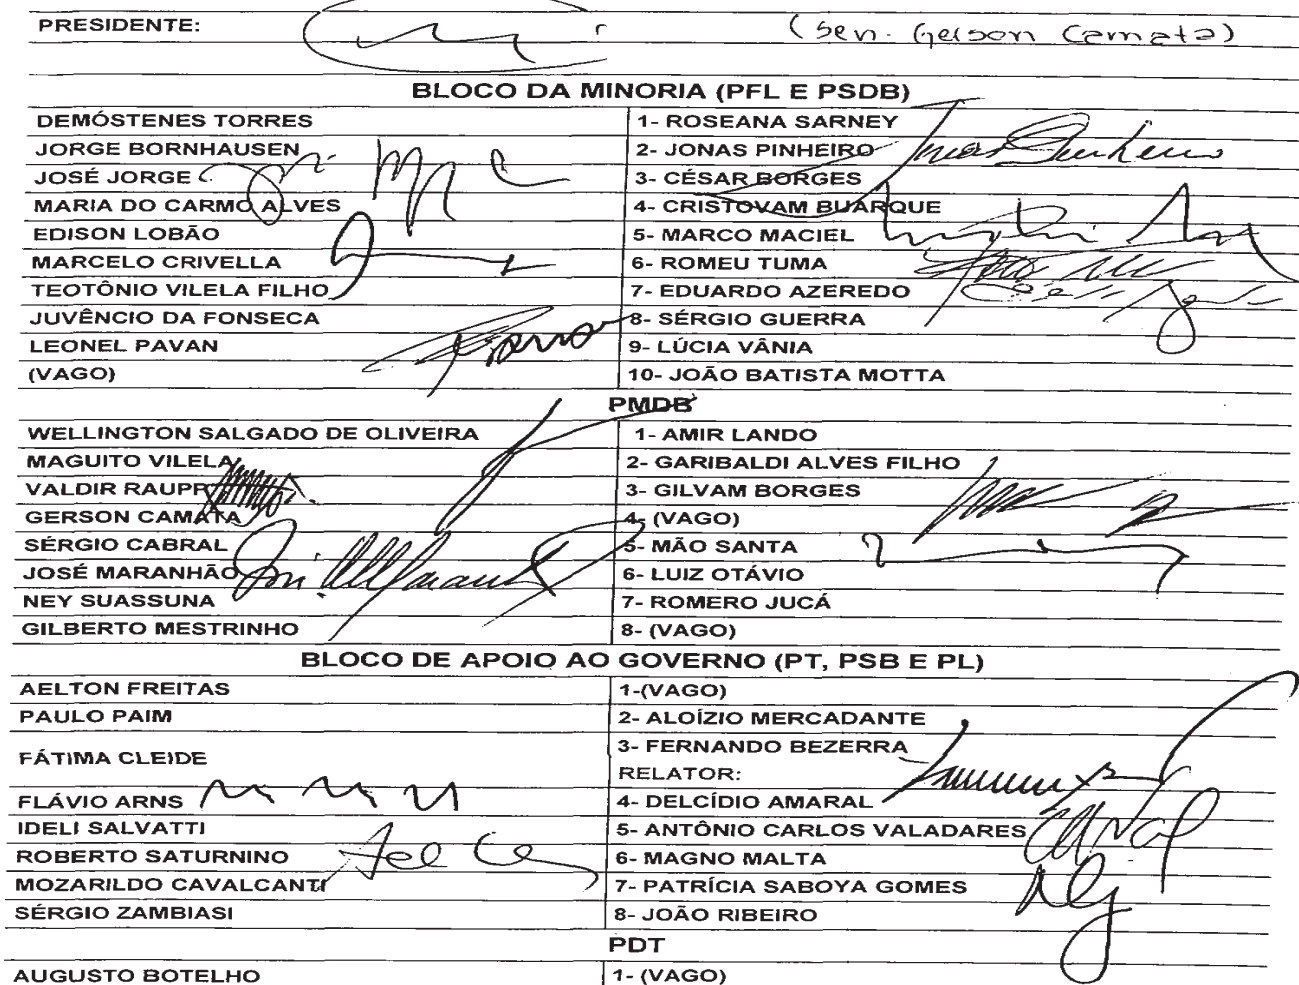 PRESIDENTE: (Sen. Gerson Camata)
BLOCO DA MINORIA (PFL E PSDB)
DEMÓSTENES TORRES 1- ROSEANA SARNEY
JORGE BORNHAUSEN 2- JONAS PINHEIRO
JOSÉ JORGE 3- CÉSAR BORGES
MARIA DO CARMO ALVES 4- CRISTOVAM BUARQUE
EDISON LOBÃO 5- MARCO MACIEL
MARCELO CRIVELLA 6- ROMEU TUMA
TEOTÔNIO VILELA FILHO 7- EDUARDO AZEREDO
JUVÊNCIO DA FONSECA 8- SÉRGIO GUERRA
LEONEL PAVAN 9- LÚCIA VÂNIA
(VAGO) 10- JOÃO BATISTA MOTTA
PMDB
WELLINGTON SALGADO DE OLIVEIRA 1- AMIR LANDO
MAGUITO VILELA 2- GARIBALDI ALVES FILHO
VALDIR RAUPP 3- GILVAM BORGES
GERSON CAMATA 4- (VAGO)
SÉRGIO CABRAL 5- MÃO SANTA
JOSÉ MARANHÃO 6- LUIZ OTÁVIO
NEY SUASSUNA 7- ROMERO JUCÁ
GILBERTO MESTRINHO 8- (VAGO)
BLOCO DE APOIO AO GOVERNO (PT, PSB E PL)
AELTON FREITAS 1-(VAGO)
PAULO PAIM 2- ALOÍZIO MERCADANTE
FÁTIMA CLEIDE 3- FERNANDO BEZERRA
RELATOR:
FLÁVIO ARNS 4- DELCÍDIO AMARAL
IDELI SALVATTI 5- ANTÔNIO CARLOS VALADARES
ROBERTO SATURNINO 6- MAGNO MALTA
MOZARILDO CAVALCANTI 7- PATRÍCIA SABOYA GOMES
SÉRGIO ZAMBIASI 8- JOÃO RIBEIRO
PDT
AUGUSTO BOTELHO 1- (VAGO)